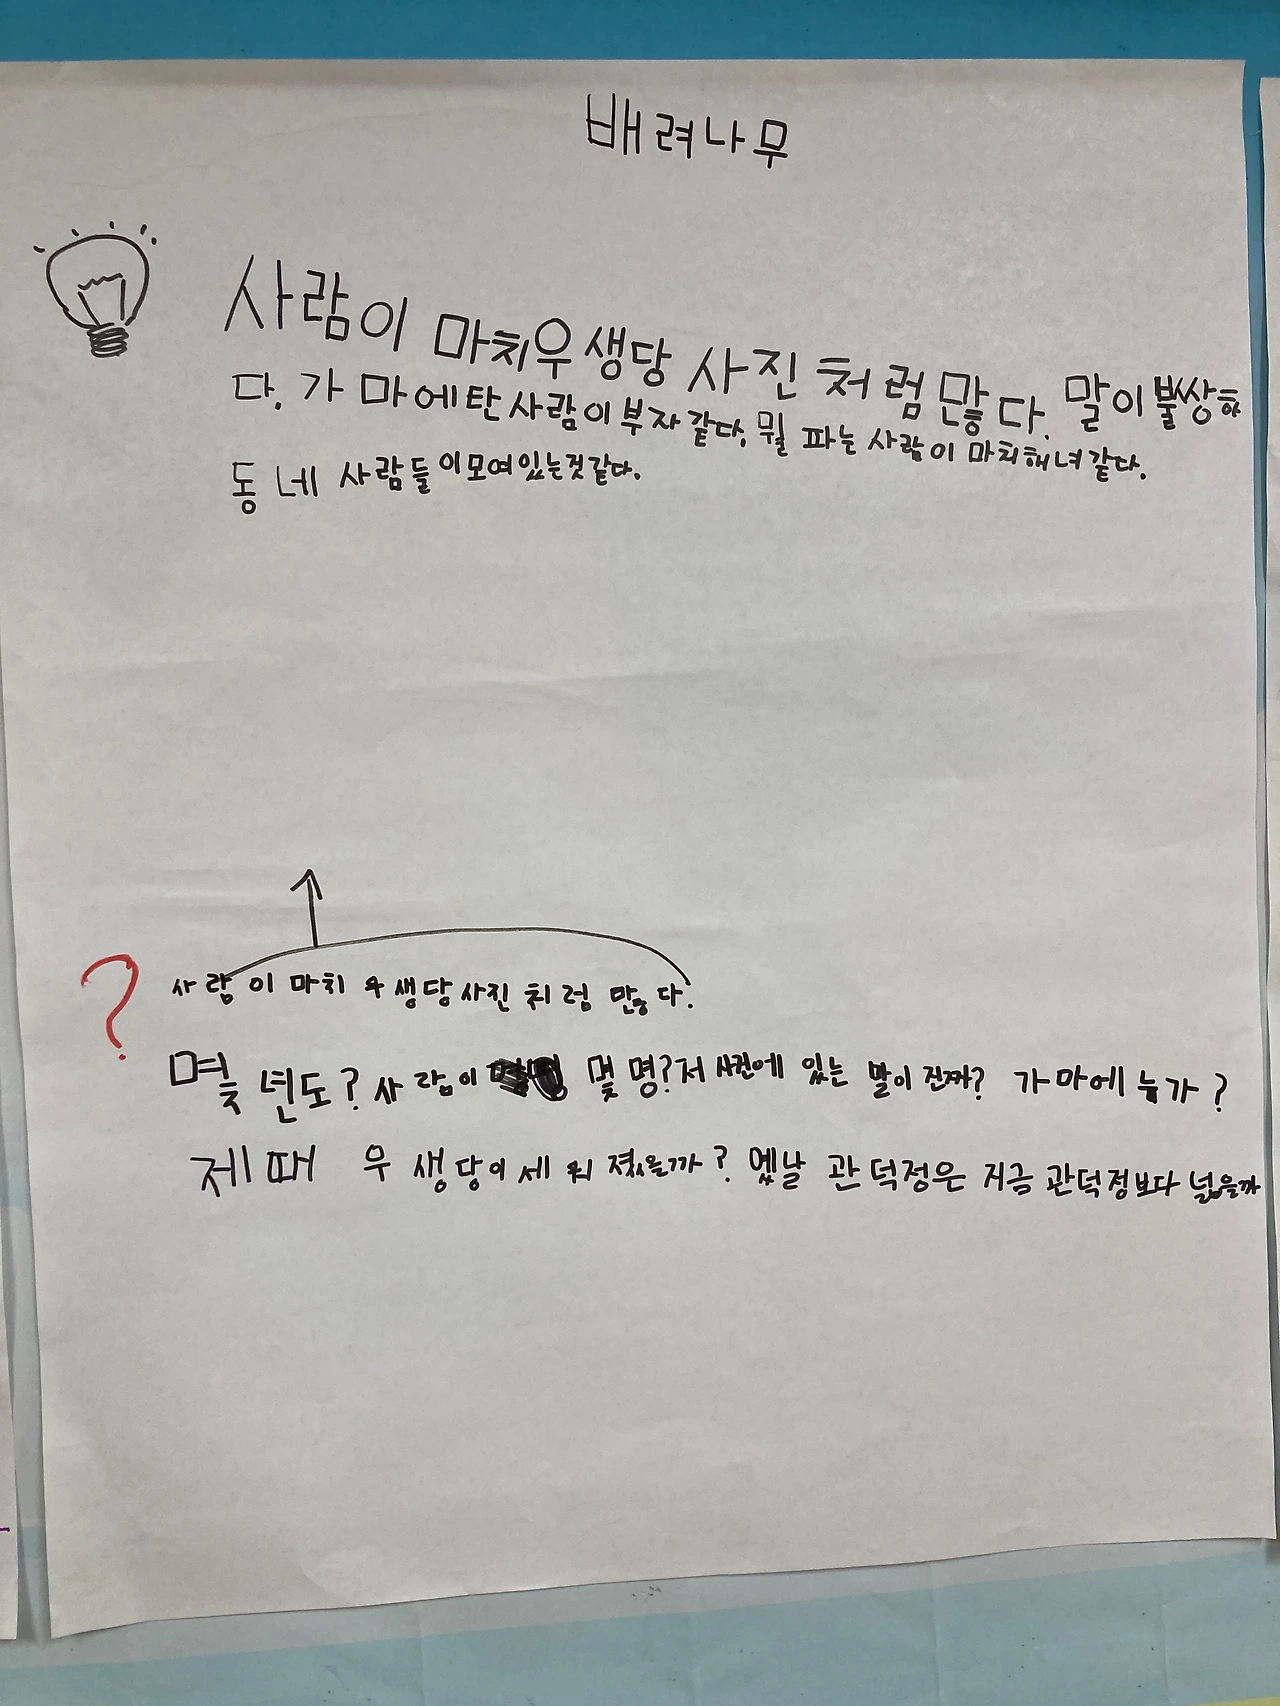 배려나무
사람이 마치우생당 사진처럼 많다. 말이 불쌍하
다. 가마에탄사람이부자같다. 뭘 파는 사람이 마치해녀같다.
동네 사람들이모여있는것같다.
?
사람이 마치 우생당사진처럼 많다.
몇 년도? 사람이 몇 명? 저 사진에 있는 말이 진짜? 가마에 누가?
제때 우생당이 세워졌을까? 옜날 관덕정은 지금 관덕정보다 넓을까